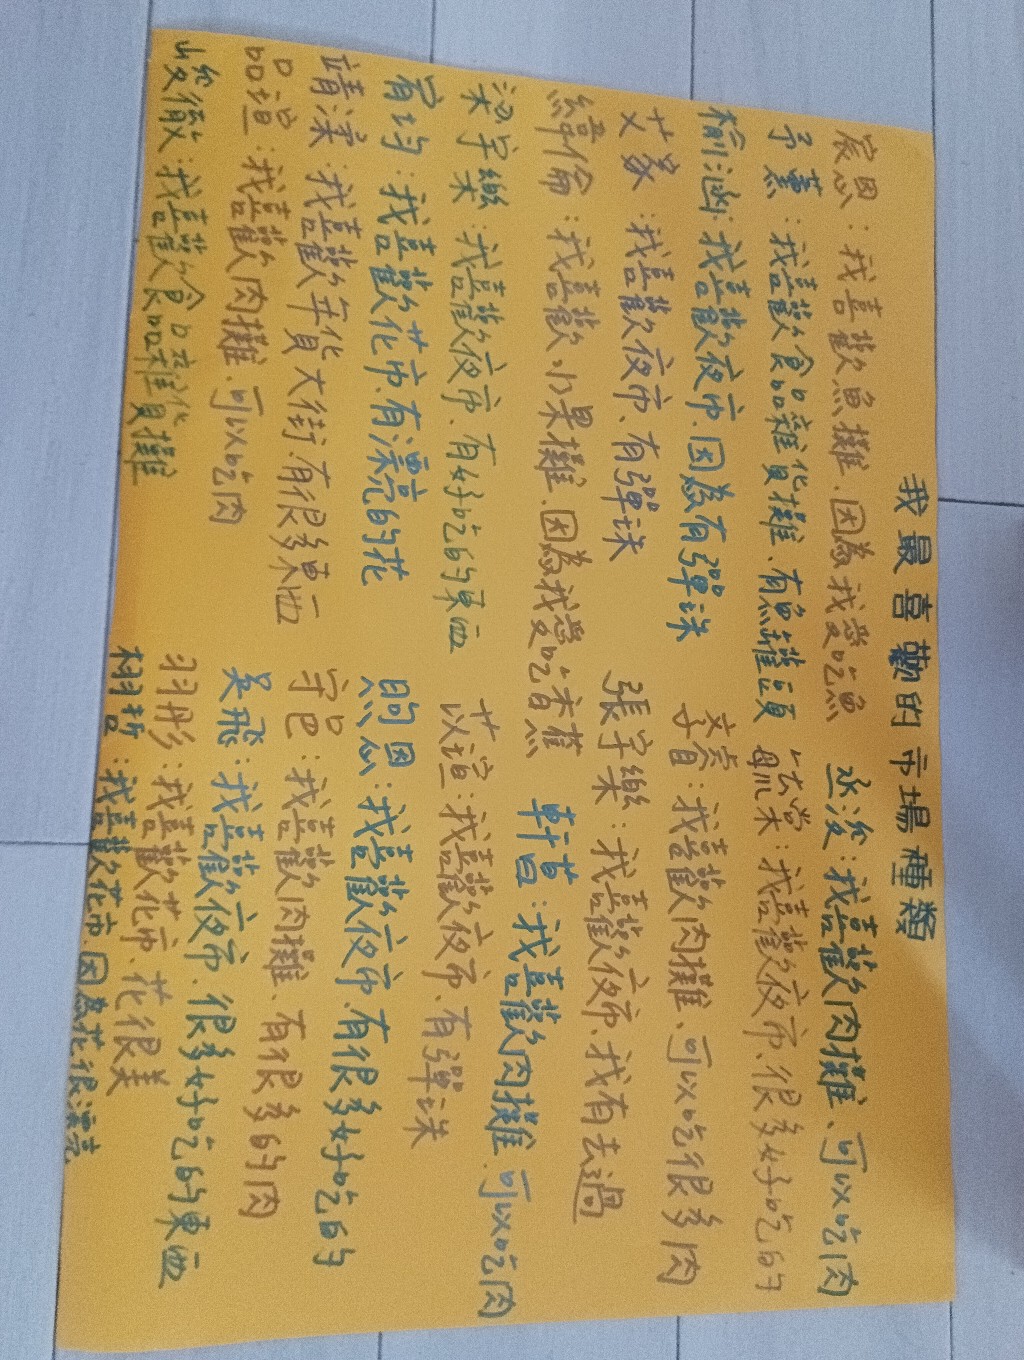 我最喜歡的市場種類
宸恩：我喜歡魚攤、因為我愛吃魚
丞浚：我喜歡肉攤、可以吃肉
予薰：我喜歡食品雜貨攤、有魚罐頭
凱棠：我喜歡夜市、很多好吃的
榆涵：我喜歡夜市、因為有彈珠
喜歡肉攤、可以吃很多肉
艾家：我喜歡夜市、有彈珠
張宇樂：我喜歡夜市、我有去過
緯倫：我喜歡水果攤、因為我愛吃香蕉
軒昔：我喜歡肉攤、可以吃肉
梁宇樂：我喜歡夜市、有好吃的東西
以瑄：我喜歡夜市、有彈珠
宥均：我喜歡花市、有漂亮的花
煦恩：我喜歡夜市、有很多好吃的
靖潔：我喜歡年貨大街、有很多東西
我喜歡肉攤、有很多的肉
品瑄：我喜歡肉攤、可以吃肉
吳飛：我喜歡夜市、很多好吃的東西
羽彤：我喜歡花市、花很美
我喜歡食品雜貨攤
栩哲：我喜歡花市、因為花很漂亮